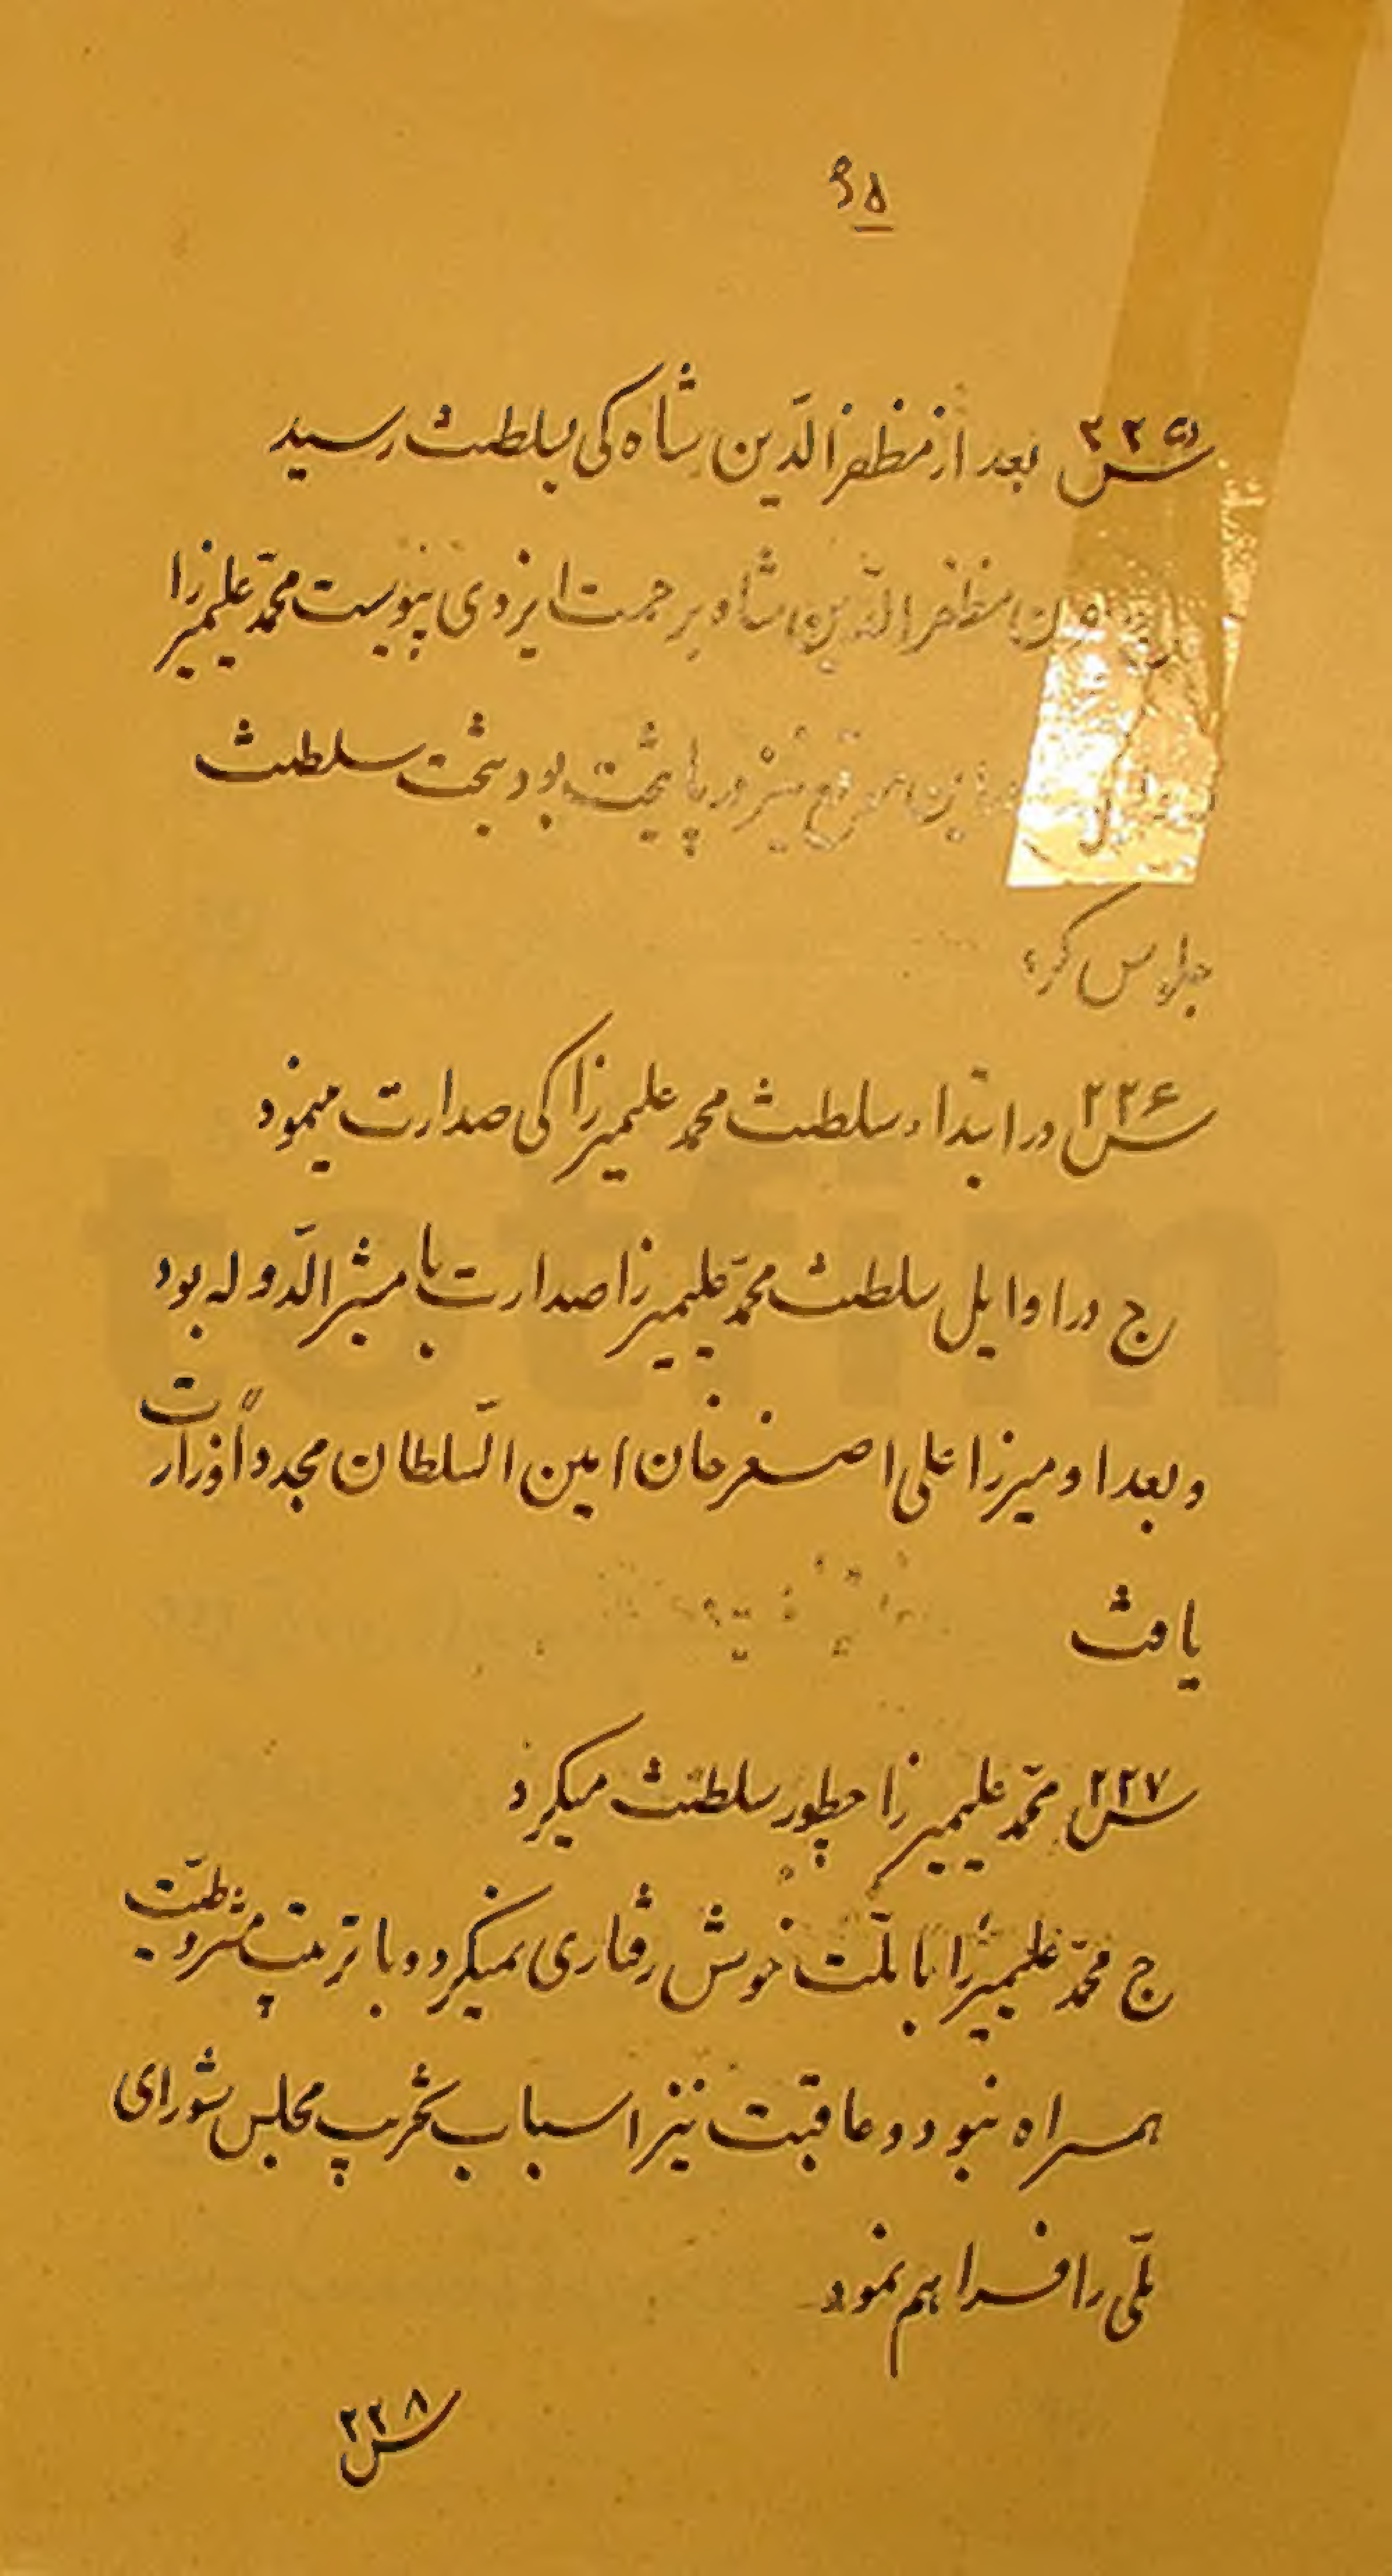 ۹۵
س ۲۲۵ بعد از مظفرالدّین شاه کی بسلطنت رسید
مظفرالدّین شاه برحمت ایزدی پیوست محمّد علیمیرزا
موقع نیز در پایتخت بود بتخت سلطنت
جلوس کرد
س ۲۲۶ در ابتداء سلطنت محمد علیمیرزا کی صدارت مینمود
ج در اوایل سلطنت محمّد علیمیرزا صدارت با مشیرالدّوله بود
و بعد او میرزا علی اصغر خان امین السّلطان مجدداً وزارت
یافت
س ۲۲۷ محمّد علیمیرزا چطور سلطنت میکرد
ج محمّد علیمیرزا با ملّت خوش رفتاری نمیکرد و با ترتیب مشروطیّت
همراه نبود و عاقبت نیز اسباب تخریب مجلس شورای
ملّی را فراهم نمود
س ۲۲۸